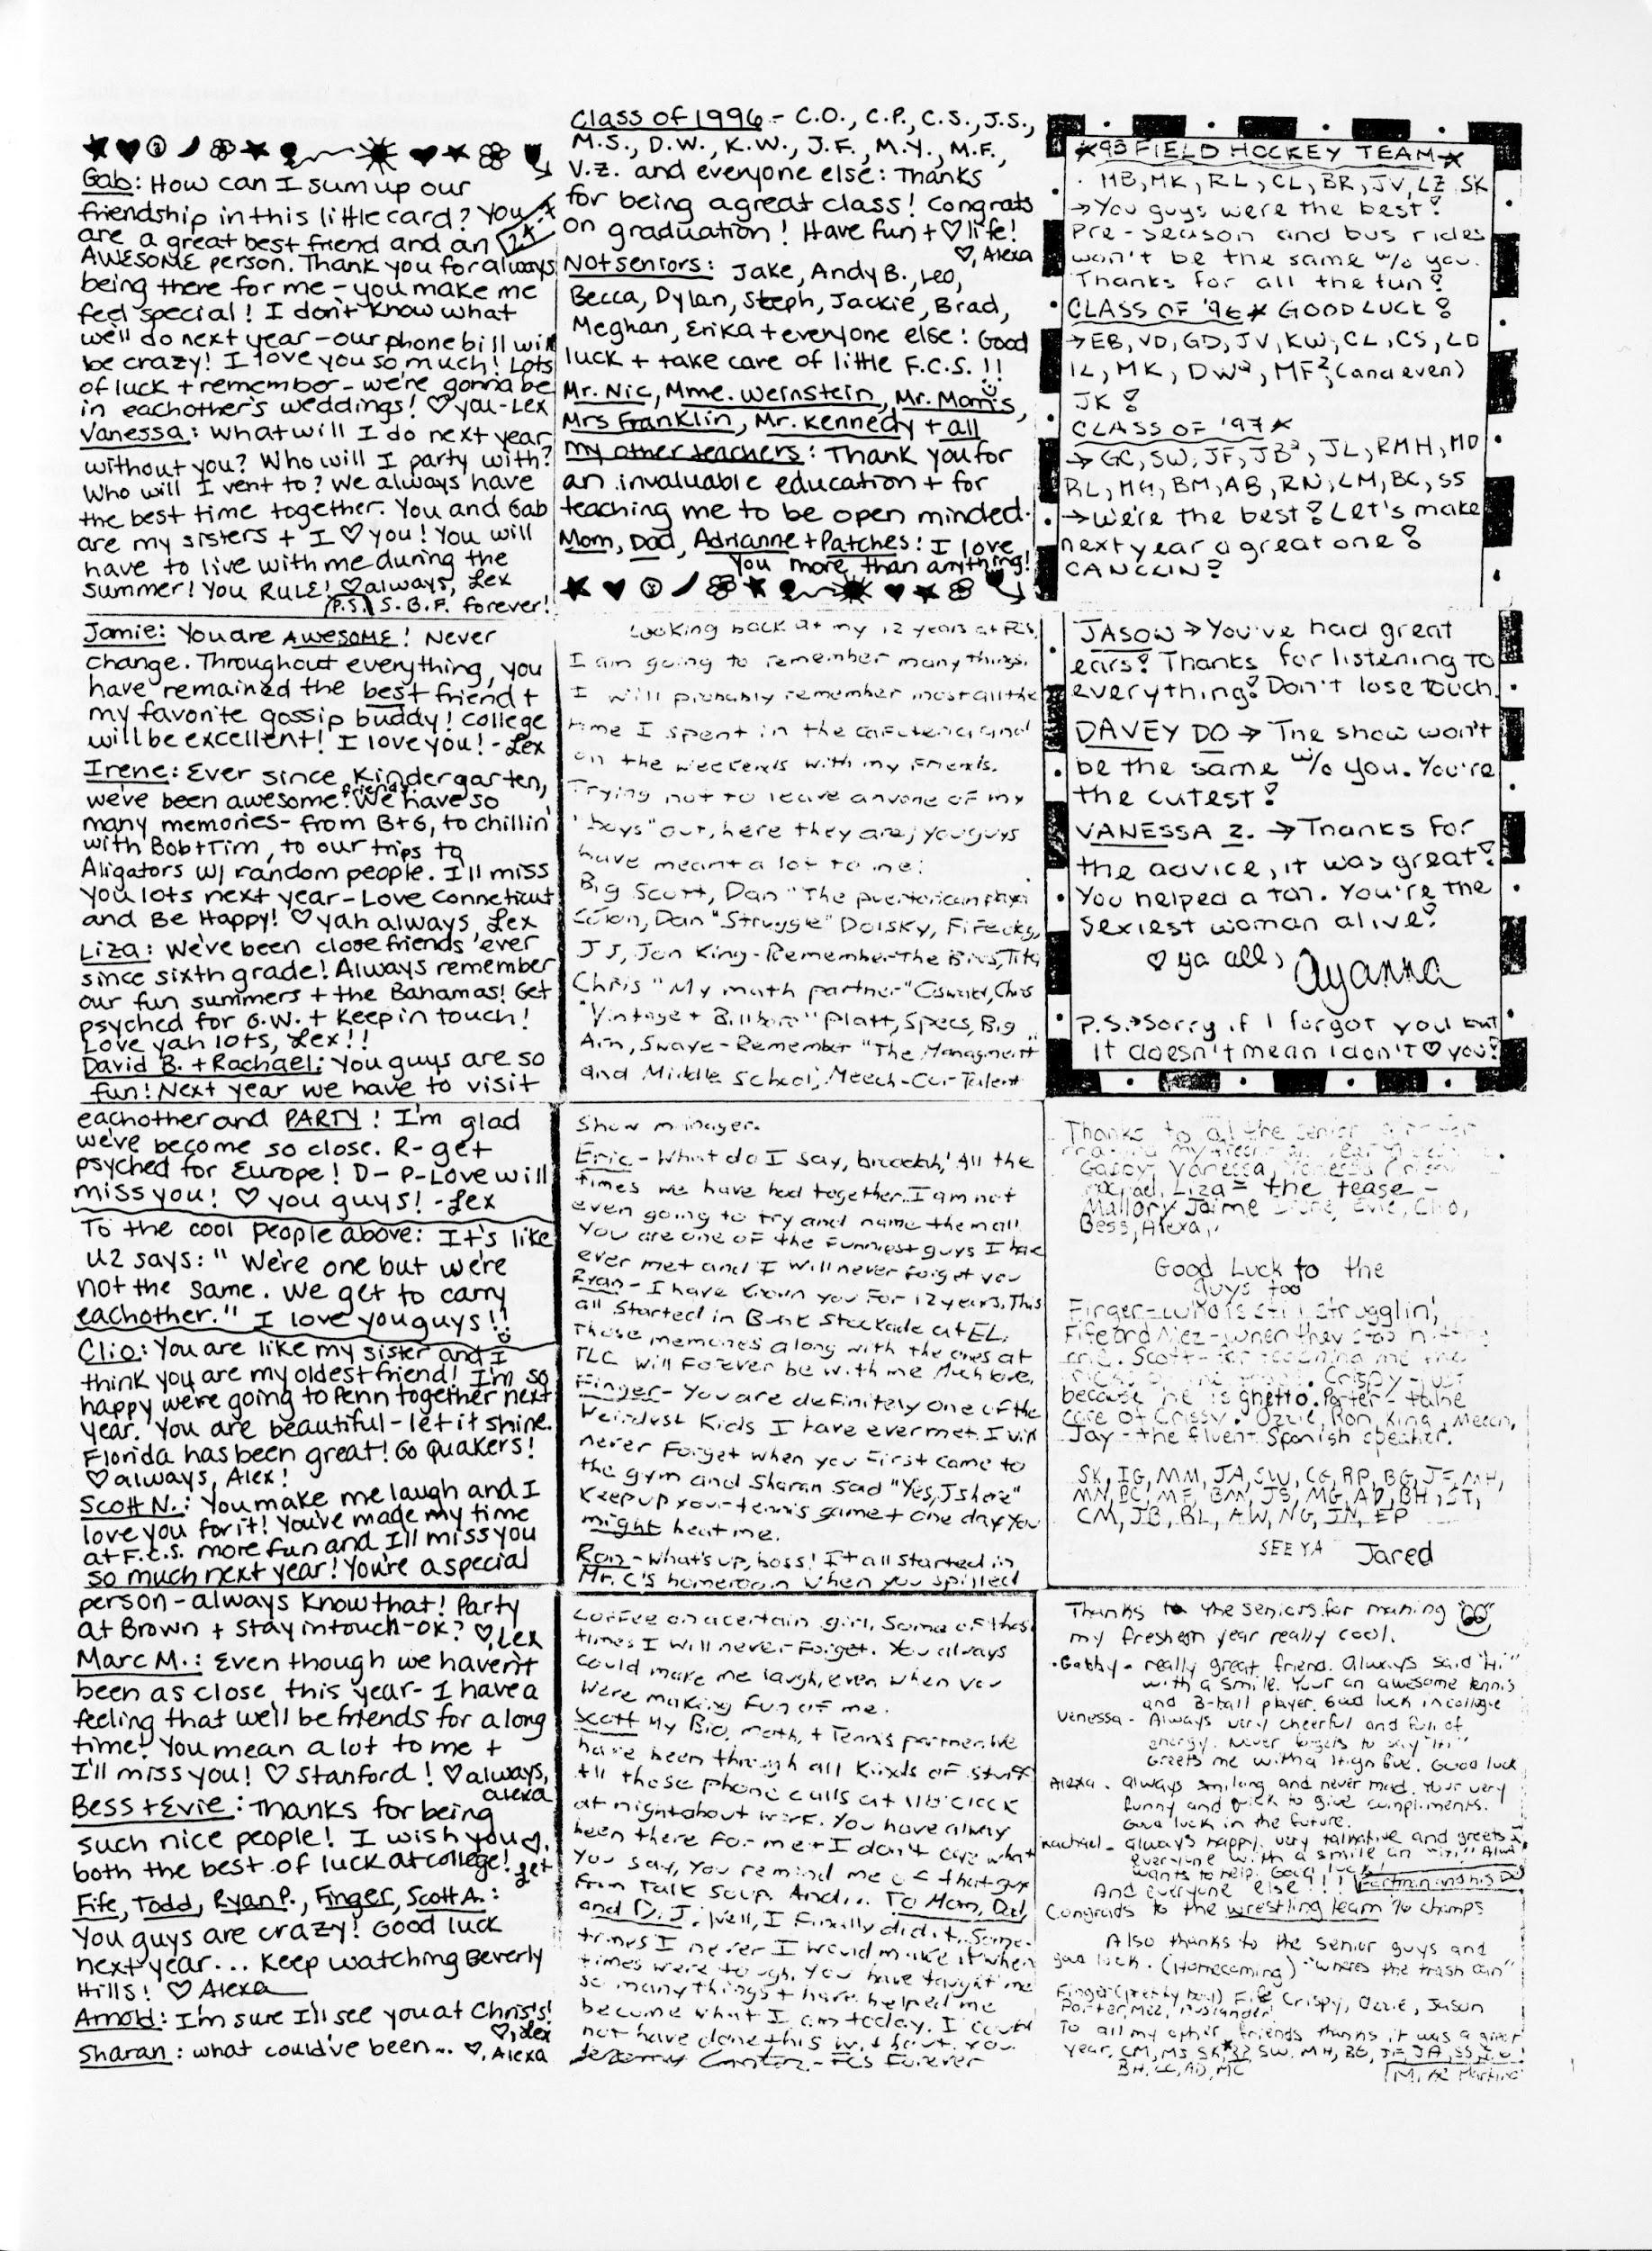 Gab: How can I sum up our
friendship in this little card? You
are a great best friend and an
AWESOME person. Thank you for always
being there for me - you make me
feel special! I don't know what
we'll do next year - our phone bill will
be crazy! I love you so much! Lots
of luck + remember - we're gonna be
in eachother's weddings! ♡ you - Lex
Vanessa: What will I do next year
without you? Who will I party with?
Who will I vent to? We always have
the best time together. You and Gab
are my sisters + I ♡ you! You will
have to live with me during the
summer! You RULE! ♡ always, Lex
P.S. S.B.F. forever!
Jamie: You are AWESOME! Never
change. Throughout everything, you
have remained the best friend +
my favorite gossip buddy! College
will be excellent! I love you! - Lex
Irene: Ever since Kindergarten,
we've been awesome friends. We have so
many memories - from B+G, to chillin'
with Bob+Tim, to our trips to
Aligators w/ random people. I'll miss
you lots next year - Love Conneticut
and Be Happy! ♡ yah always, Lex
Liza: We've been close friends 'ever
since sixth grade! Always remember
our fun summers + the Bahamas! Get
psyched for G.W. + Keep in touch!
Love yah lots, Lex!!
David B. + Rachael: You guys are so
fun! Next year we have to visit
eachother and PARTY! I'm glad
we've become so close. R- get
psyched for Europe! D- P-Love will
miss you! ♡ you guys! - Lex
To the cool people above: It's like
U2 says: "We're one but we're
not the same. We get to carry
eachother." I love you guys!!
Clio: You are like my sister and I
think you are my oldest friend! I'm so
happy we're going to Penn together next
year. You are beautiful - let it shine.
Florida has been great! Go Quakers!
♡ always, Alex!
Scott N.: You make me laugh and I
love you for it! You've made my time
at F.C.S. more fun and I'll miss you
so much next year! You're a special
person - always know that! Party
at Brown + stay in touch - ok? ♡, Lex
Marc M.: Even though we haven't
been as close this year - I have a
feeling that we'll be friends for a long
time! You mean a lot to me +
I'll miss you! ♡ Stanford! ♡ always,
alexa
Bess + Evie: Thanks for being
such nice people! I wish you
both the best of luck at college! ♡, Lex
Fife, Todd, Ryan P., Finger, Scott A.:
You guys are crazy! Good luck
next year... Keep watching Beverly
Hills! ♡ Alexa
Arnold: I'm sure I'll see you at Chris's!
♡, Lex
Sharan: what could've been... ♡, Alexa
Class of 1996 - C.O., C.P., C.S., J.S.,
M.S., D.W., K.W., J.F., M.Y., M.F.,
V.Z. and everyone else: Thanks
for being a great class! Congrats
on graduation! Have fun + ♡ life!
♡, Alexa
Not seniors: Jake, Andy B., Leo,
Becca, Dylan, Steph, Jackie, Brad,
Meghan, Erika + everyone else: Good
luck + take care of little F.C.S.!!
Mr. Nic, Mme. Weinstein, Mr. Morris,
Mrs Franklin, Mr. Kennedy + all
my other teachers: Thank you for
an invaluable education + for
teaching me to be open minded.
Mom, Dad, Adrianne + Patches: I love
you more than anything!
Looking back at my 12 years at FCS,
I am going to remember many things.
I will probably remember most all the
time I spent in the cafeteria and
on the weekends with my friends.
Trying not to leave anyone of my
"boys" out, here they are; you guys
have meant a lot to me:
Big Scott, Dan "The puertorican
Colon, Dan "Struggle" Dolsky, Fifecky,
JJ, Jon King - Remember the Bros, Tito,
Chris "My math partner" Chris
"Vintage + Billboro" Platt, Specs, Big
Arn, Swaye - Remember "The Managment"
and Middle School, Meech - Our Talent
Show manager.
Eric - What do I say, bruddah! All the
times we have had together. I am not
even going to try and name them all
You are one of the funniest guys I have
ever met and I will never forget you
Ryan - I have known you for 12 years. This
all started in Bunk Stockade at EL.
Those memories along with the ones at
TLC will forever be with me. Much love,
Finger - You are definitely one of the
weirdest kids I have ever met. I will
never forget when you first came to
the gym and Sharan said "Yes, I share"
Keep up your tennis game + one day you
might beat me.
Ron - What's up, boss! It all started in
Mr. C's homeroom when you spilled
coffee on a certain girl. Some of those
times I will never forget. You always
could make me laugh, even when you
were making fun of me.
Scott My Bio, math, + Tennis partner. We
have been through all kinds of stuff
All those phone calls at 11 o'clock
at night about work. You have always
been there for me + I don't care what
you say, you remind me of that guy
from Talk Soup. And... To Mom, Dad,
and D.J.: Well, I finally did it. Some-
times I never I would make it when
times were tough. You have taught me
so many things + have helped me
become what I am today. I could
not have done this without you
- FCS Forever
★ 93 FIELD HOCKEY TEAM ★
MB, MK, RL, CL, BR, JV, LZ, SK
→ You guys were the best!
Pre-season and bus rides
won't be the same w/o you.
Thanks for all the fun!
CLASS OF '96 ★ GOOD LUCK!
→ EB, VD, GD, JV, KW, CL, CS, LD
IL, MK, DW², MF², (and even)
JK!
CLASS OF '97 ★
→ GC, SW, JF, JB², JL, RMH, MD
RL, MH, BM, AB, RN, LM, BC, SS
→ We're the best! Let's make
next year a great one!
CANCCIN!
JASON → You've had great
ears! Thanks for listening to
everything! Don't lose touch.
DAVEY DO → The show won't
be the same w/o you. You're
the cutest!
VANESSA Z. → Thanks for
the advice, it was great!
You helped a ton. You're the
sexiest woman alive!
♡ ya all, Ayanna
P.S. → Sorry if I forgot you but
it doesn't mean I don't ♡ you!
Thanks to all the senior
Gabby, Vanessa,
rachael, Liza = the tease -
Mallory Jaime Irene, Evie, Clio,
Bess, Alexa,
Good Luck to the
guys too
Finger - who is still strugglin',
Fife and Mez - when they stop hitting
eric. Scott - for teaching me the
Crispy - just
because he is ghetto. Porter - take
care of Crissy. Ozzie, Ron, King, Meech,
Jay - the fluent Spanish speaker.
SK, IG, MM, JA, SW, CG, RP, BG, JF, MH,
MN, BC, MF, BM, JS, MG, AD, BH, ST,
CM, JB, RL, AW, NG, JN, EP
SEE YA Jared
Thanks to the seniors for making
my freshman year really cool.
Gabby - really great friend. Always said "Hi"
with a smile. Your an awesome tennis
and B-ball player. Good luck in college
Venessa - Always very cheerful and full of
energy. Never forgets to say "Hi"
Greets me with a High five. Good luck
Alexa - always smiling and never mad. Your very
funny and quick to give compliments.
Good luck in the future.
Rachael - always happy, very talkative and greets
everyone with a smile an "Hi"
wants to help. Good luck!
And everyone else!!!
Congrads to the wrestling team 96 champs
Also thanks to the senior guys and
good luck. (Homecoming) - "wheres the trash can"
Finger (pretty boy) Fife Crispy, Ozzie, Jason
Porter, Mez,
To all my other friends thanks it was a great
year. CM, MS, SK, SW, MH, BG, JF, JA, SS,
BH, CC, AD, MC